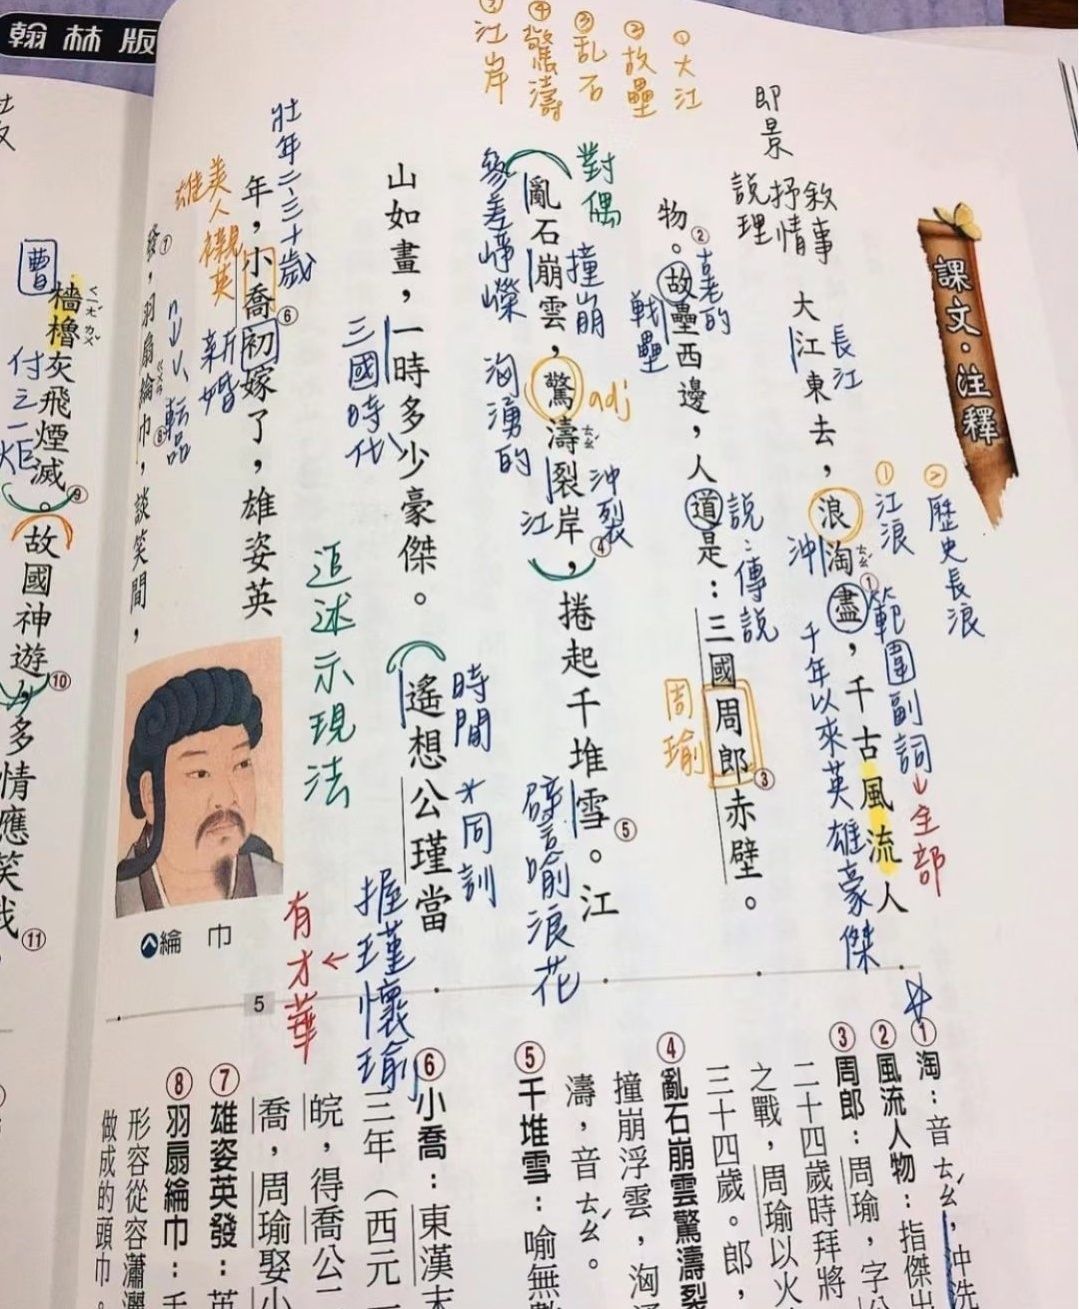 翰林版
課文·注釋
即景
敘事
抒情
說理
①大江
②故壘
③乱石
④驚濤
江岸
大江東去，浪淘盡①，千古風流人
物②。故壘西邊，人道是：三國周郎③赤壁。
亂石崩雲，驚濤裂岸④，捲起千堆雪⑤。江
山如畫，一時多少豪傑。遙想公瑾當
年，小喬⑥初嫁了，雄姿英
發⑦，羽扇綸巾⑧，談笑間，
檣櫓灰飛煙滅⑨。故國神遊⑩，多情應笑我⑪，
ㄊㄠˊ
ㄊㄠˊ
ㄑㄧㄤˊ ㄌㄨˇ
長江
①江浪
②歷史長浪
沖
範圍副詞
↓全部
千年以來英雄豪傑
戰壘
說：傳說
周瑜
對偶
撞崩
參差崢嶸
adj
洶湧的
沖裂
江
譬喻浪花
三國時代
時間
*同訓
握瑾懷瑜
→有才華
追述示現法
壯年二、三十歲
美人
襯英
雄
新婚
轉品
曹
付之一炬
綸巾
5
①淘：音ㄊㄠˊ，沖洗
②風流人物：指傑出
③周郎：周瑜，字公
二十四歲時拜將
之戰，周瑜以火
三十四歲。郎，
④亂石崩雲驚濤裂
撞崩浮雲，洶湧
濤，音ㄊㄠˊ。
⑤千堆雪：喻無數
⑥小喬：東漢末
三年（西元一
皖，得喬公二
喬，周瑜娶小
⑦雄姿英發：英
⑧羽扇綸巾：手
形容從容瀟灑
做成的頭巾。